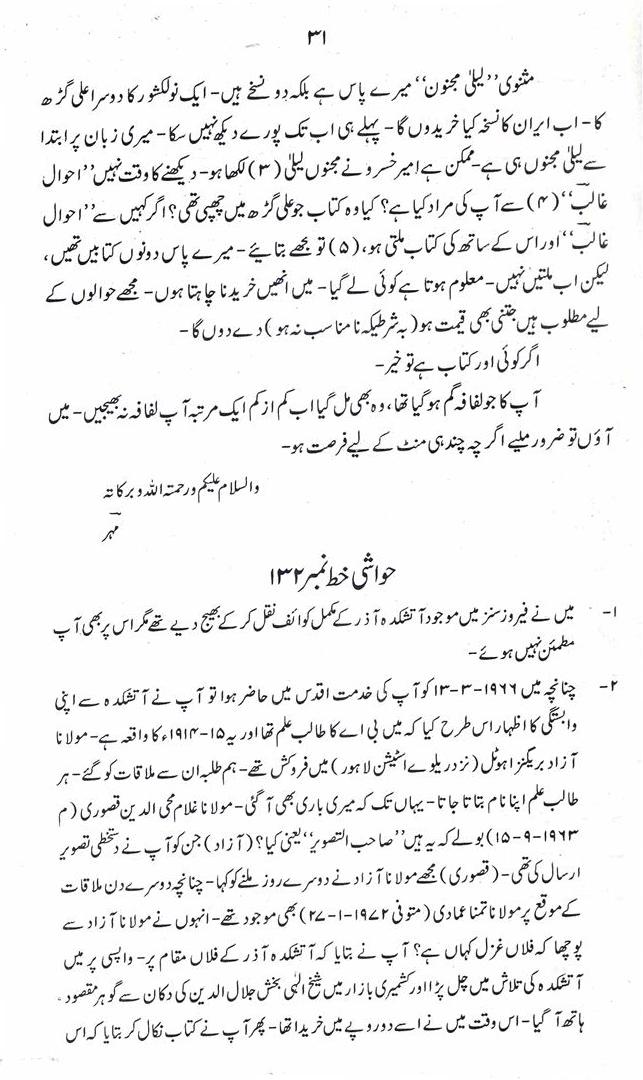 ۳۱
مثنوی ”لیلیٰ مجنون“ میرے پاس ہے بلکہ دو نسخے ہیں- ایک نولکشور کا دوسرا علی گڑھ
کا- اب ایران کا نسخہ کیا خریدوں گا- پہلے ہی اب تک پورے دیکھ نہیں سکا- میری زبان پر ابتدا
سے لیلیٰ مجنوں ہی ہے- ممکن ہے امیر خسرو نے مجنوں لیلیٰ (۳) لکھا ہو- دیکھنے کا وقت نہیں ”احوال
غالب“ (۴) سے آپ کی مراد کیا ہے؟ کیا وہ کتاب جو علی گڑھ میں چھپی تھی؟ اگر کہیں سے ”احوال
غالب“ اور اس کے ساتھ کی کتاب ملتی ہو، (۵) تو مجھے بتایئے- میرے پاس دونوں کتابیں تھیں،
لیکن اب ملتیں نہیں- معلوم ہوتا ہے کوئی لے گیا- میں انھیں خریدنا چاہتا ہوں- مجھے حوالوں کے
لیے مطلوب ہیں جتنی بھی قیمت ہو (بہ شرطیکہ نامناسب نہ ہو) دے دوں گا-
اگر کوئی اور کتاب ہے تو خیر-
آپ کا جو لفافہ گم ہو گیا تھا، وہ بھی مل گیا اب کم از کم ایک مرتبہ آپ لفافہ نہ بھیجیں- میں
آؤں تو ضرور ملیے اگرچہ چند ہی منٹ کے لیے فرصت ہو-
والسلام علیکم ورحمتہ اللہ وبرکاتہ
مہر
حواشی خط نمبر ۱۳۲
۱- میں نے فیروز سنز میں موجود آتشکدہ آذر کے مکمل کوائف نقل کر کے بھیج دیے تھے مگر اس پر بھی آپ
مطمئن نہیں ہوئے-
۲- چنانچہ میں ۱۹۶۶-۳-۱۳ کو آپ کی خدمت اقدس میں حاضر ہوا تو آپ نے آتشکدہ سے اپنی
وابستگی کا اظہار اس طرح کیا کہ میں بی اے کا طالب علم تھا اور یہ ۱۵-۱۹۱۴ء کا واقعہ ہے- مولانا
آزاد بریگنزا ہوٹل (نزد ریلوے اسٹیشن لاہور) میں فروکش تھے- ہم طلبہ ان سے ملاقات کو گئے- ہر
طالب علم اپنا نام بتاتا جاتا- یہاں تک کہ میری باری بھی آ گئی- مولانا غلام محی الدین قصوری (م
۱۹۶۳-۹-۱۵) بولے کہ یہ ہیں ”صاحب التصویر“ یعنی کیا؟ (آزاد) جن کو آپ نے دستخطی تصویر
ارسال کی تھی- (قصوری) مجھے مولانا آزاد نے دوسرے روز ملنے کو کہا- چنانچہ دوسرے دن ملاقات
کے موقع پر مولانا تمنا عمادی (متوفی ۱۹۷۲-۱-۲۷) بھی موجود تھے- انہوں نے مولانا آزاد سے
پوچھا کہ فلاں غزل کہاں ہے؟ آپ نے بتایا کہ آتشکدہ آذر کے فلاں مقام پر- واپسی پر میں
آتشکدہ کی تلاش میں چل پڑا اور کشمیری بازار میں شیخ الٰہی بخش جلال الدین کی دکان سے گوہر مقصود
ہاتھ آ گیا- اس وقت میں نے اسے دو روپے میں خریدا تھا- پھر آپ نے کتاب نکال کر بتایا کہ اس